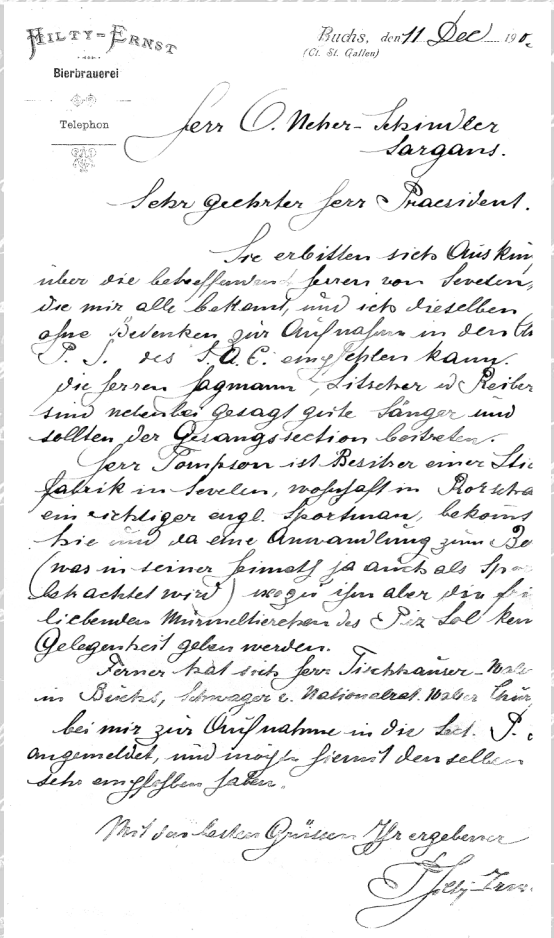 HILTY-ERNST
Bierbrauerei
Telephon
Buchs, den 11 Dec 190
(Ct. St. Gallen)
Herr O. Neher-Schindler
Sargans.
Sehr geehrter Herr Praesident.
Sie erbitten sich Auskun
über die betreffenden Herren von Sevelen,
die mir alle bekant, und ich dieselben
ohne Bedenken zur Aufnahme in den
P. S. des S.A.C. empfehlen kann.
Die Herren Hagmann, Litscher u Reiber
sind nebenbei gesagt gute Sänger und
sollten der Gesangssection beitreten.
Herr Tompson ist Besitzer einer Stic
fabrik in Sevelen, wohnhaft in Rorscha
ein richtiger engl. Sportman, bekomt
hie und da eine Anwandlung zum Bo
(was in seiner Heimath ja auch als Spo
betrachtet wird) wozu ihm aber die
liebenden Murmeltierchen des Piz Sol
Gelegenheit geben werden.
Ferner hat sich Herr Tischhauser-
in Buchs, Schwager v. Nationalrat.
bei mir zur Aufnahme in die Sect. P.
angemeldet, und möchte hiemit denselben
sehr empfohlen haben.
Mit den besten Grüssen Ihr ergebener
Hilty-Ernst